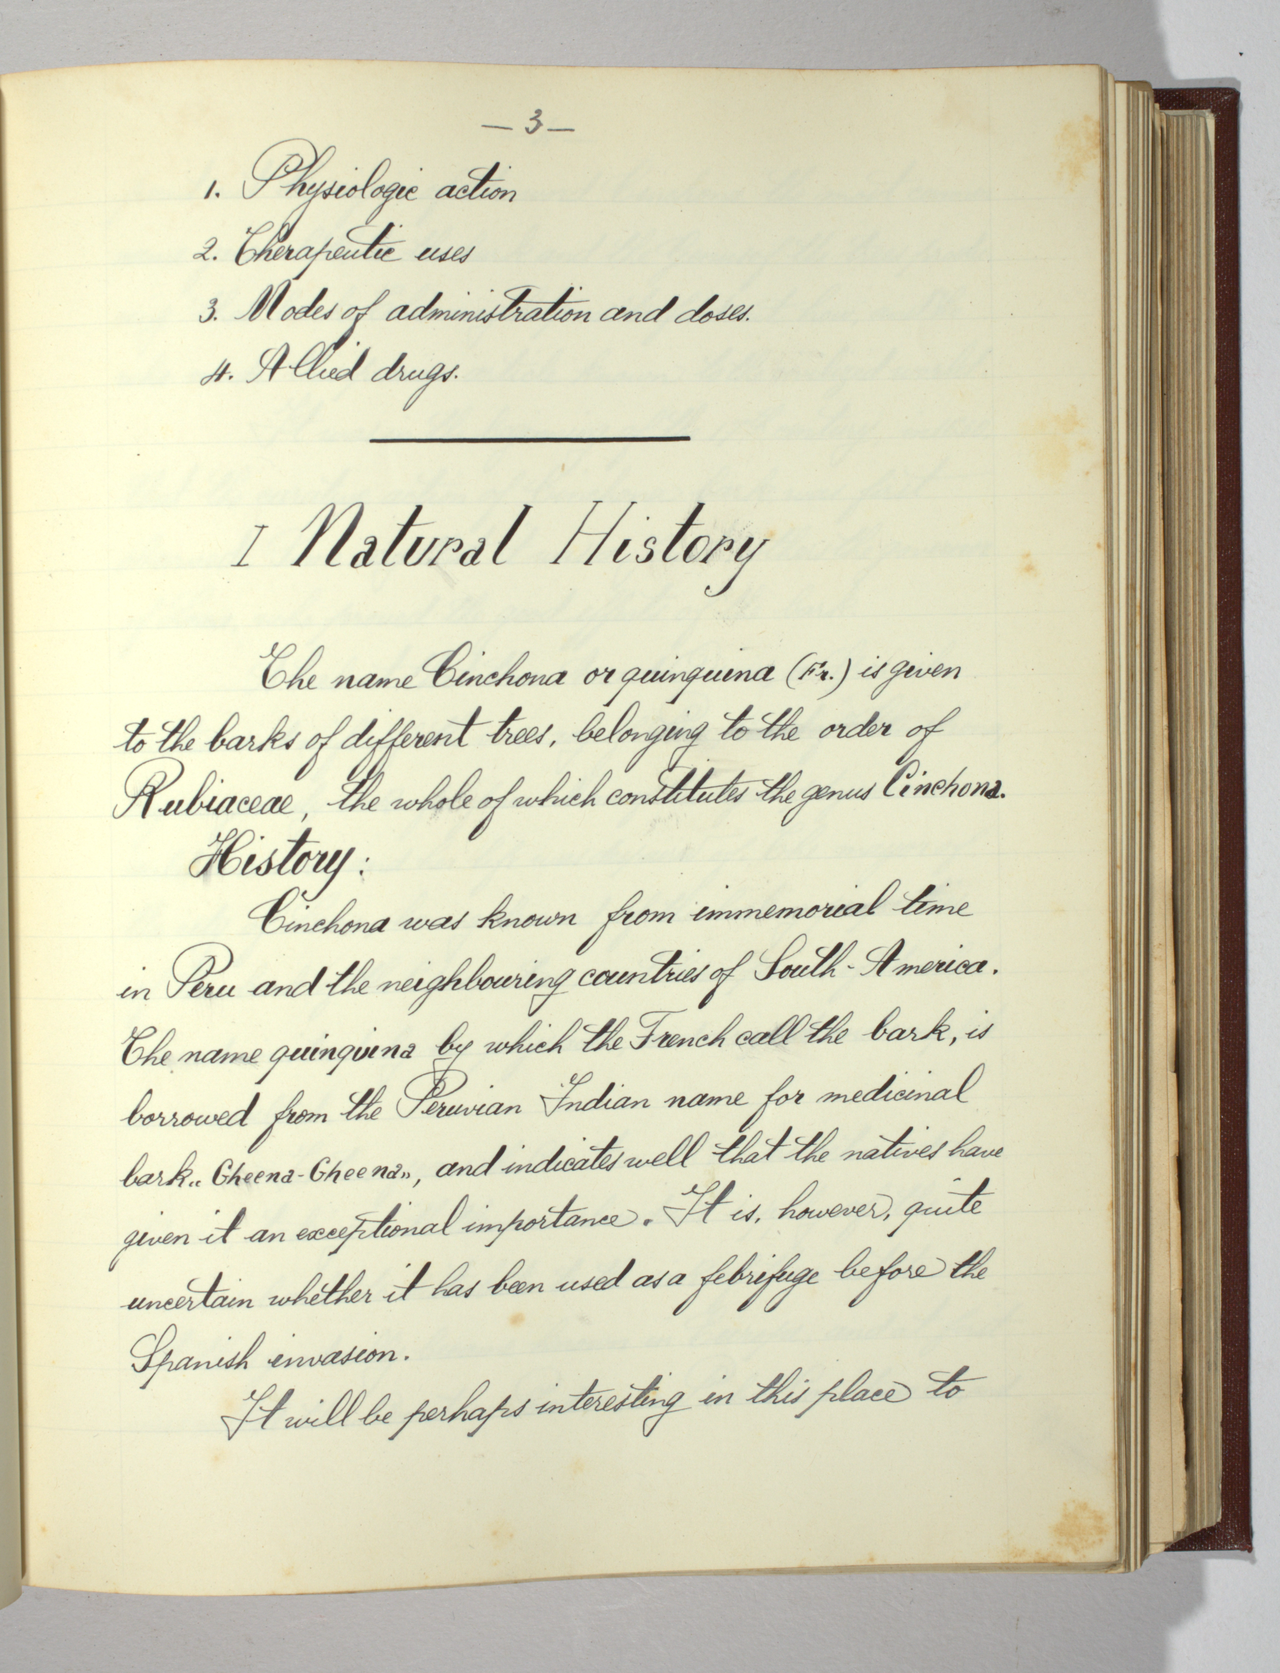 — 3 —
1. Physiologic action
2. Therapeutic uses
3. Modes of administration and doses.
4. Allied drugs.
I Natural History
The name Cinchona or quinquina (Fr.) is given
to the barks of different trees, belonging to the order of
Rubiaceae, the whole of which constitutes the genus Cinchona.
History:
Cinchona was known from immemorial time
in Peru and the neighbouring countries of South-America.
The name quinquina by which the French call the bark, is
borrowed from the Peruvian Indian name for medicinal
bark „Gheena-Gheena”, and indicates well that the natives have
given it an exceptional importance. It is, however, quite
uncertain whether it has been used as a febrifuge before the
Spanish invasion.
It will be perhaps interesting in this place to